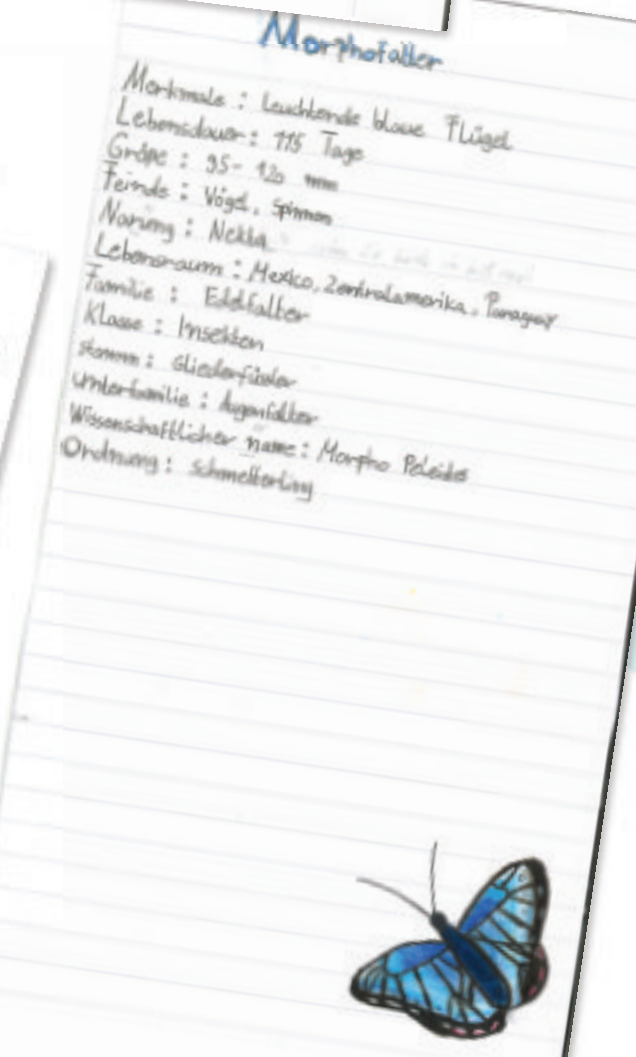 Morphofalter
Merkmale : Leuchtende blaue Flügel
Lebensdauer : 115 Tage
Größe : 95- 120 mm
Feinde : Vögel, Spinnen
Narung : Nektar
Lebensraum : Mexico, Zentralamerika, Paraguay
Familie : Edelfalter
Klasse : Insekten
Stamm : Gliederfüsler
Unterfamilie : Augenfalter
Wissenschaftlicher name : Morpho Peleides
Ordnung : Schmetterling